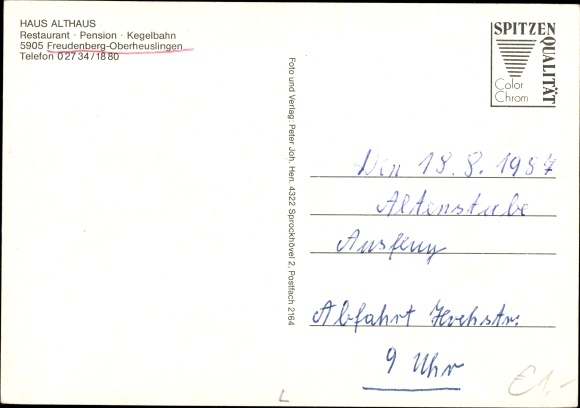 HAUS ALTHAUS
Restaurant · Pension · Kegelbahn
5905 Freudenberg-Oberheuslingen
Telefon 0 27 34 / 18 80
SPITZEN
QUALITÄT
Color
Chrom
Foto und Verlag: Peter Joh. Hen. 4322 Sprockhövel 2, Postfach 2164
Den 18.8.1987
Altenstube
Abfahrt Hochstr.
9 Uhr
€1.-
L